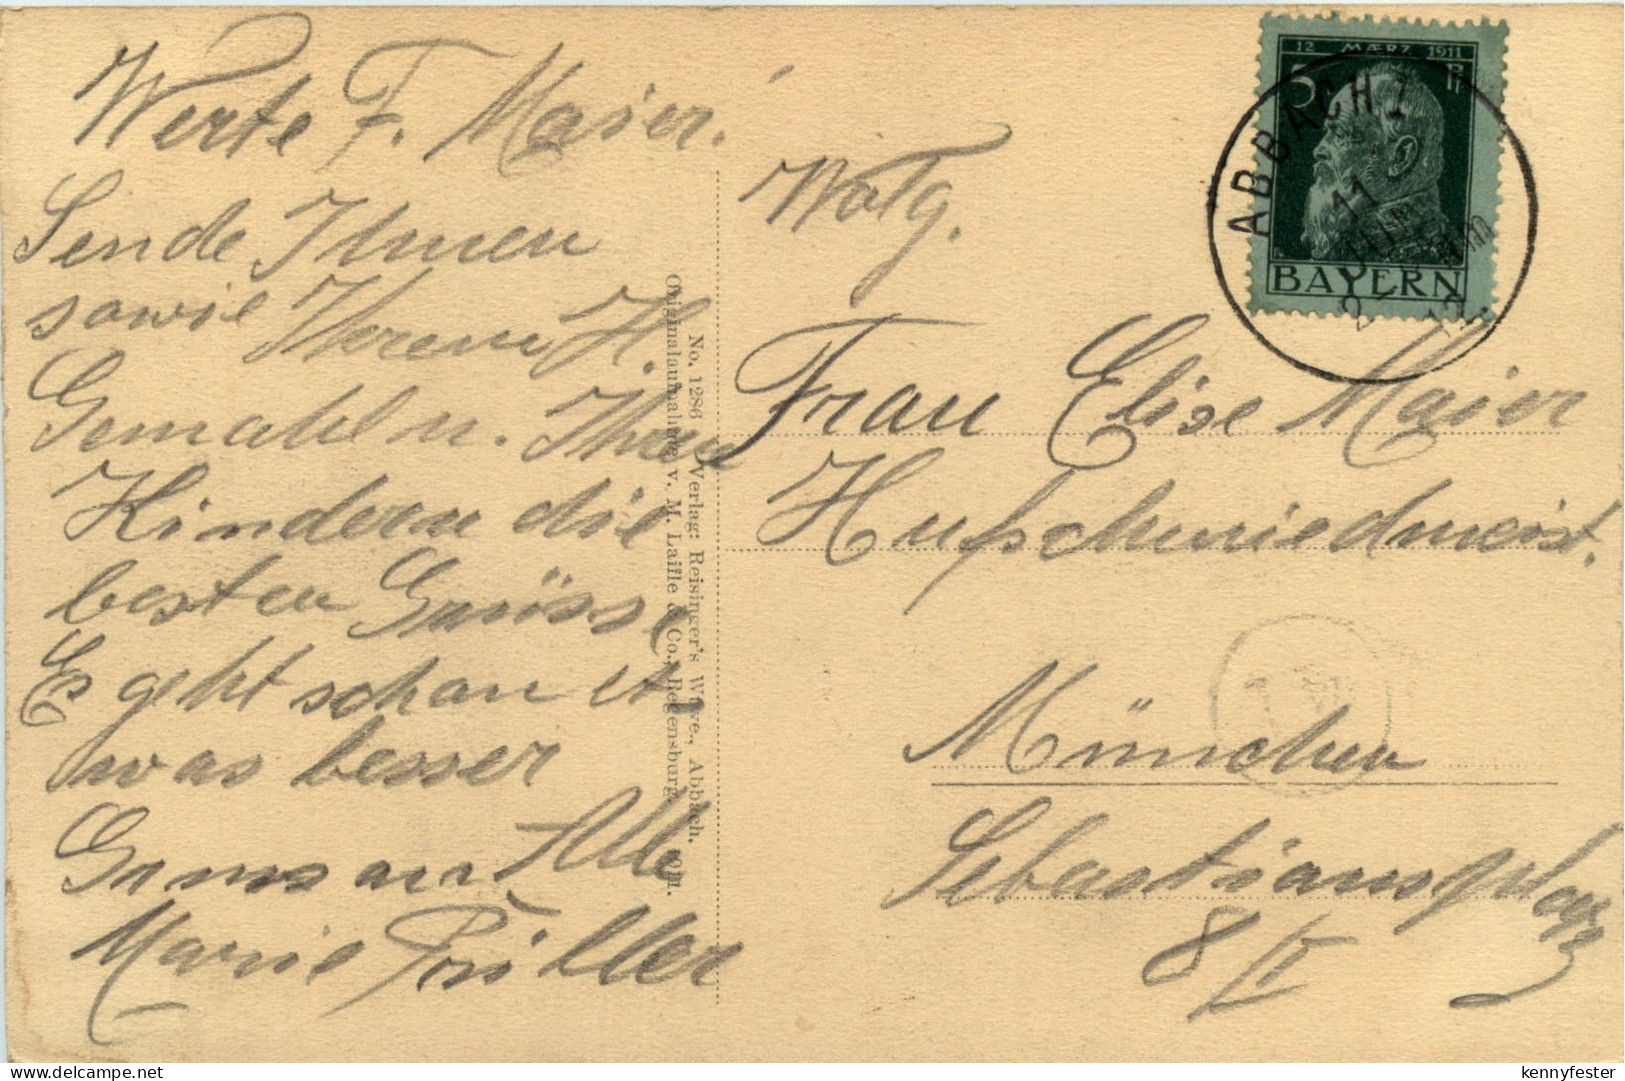 Werte F. Maier!
Sende Ihnen
sowie Ihrem H.
Gemahl u. Ihren
Kindern die
besten Grüsse
Es geht schon et
was besser
Gruss an Alle
Marie
No. 1286 Verlag: Reisinger's Wwe., Abbach.
Originalaufnahme v. M. Laifle & Co., Regensburg.
12 MÆRZ 1911
5 Pf
BAYERN
ABBACH 1
11
JUN
12
Frau Elise Maier
Hufschmiedmeist.
München
Sebastiansplatz
8/II
kennyfester